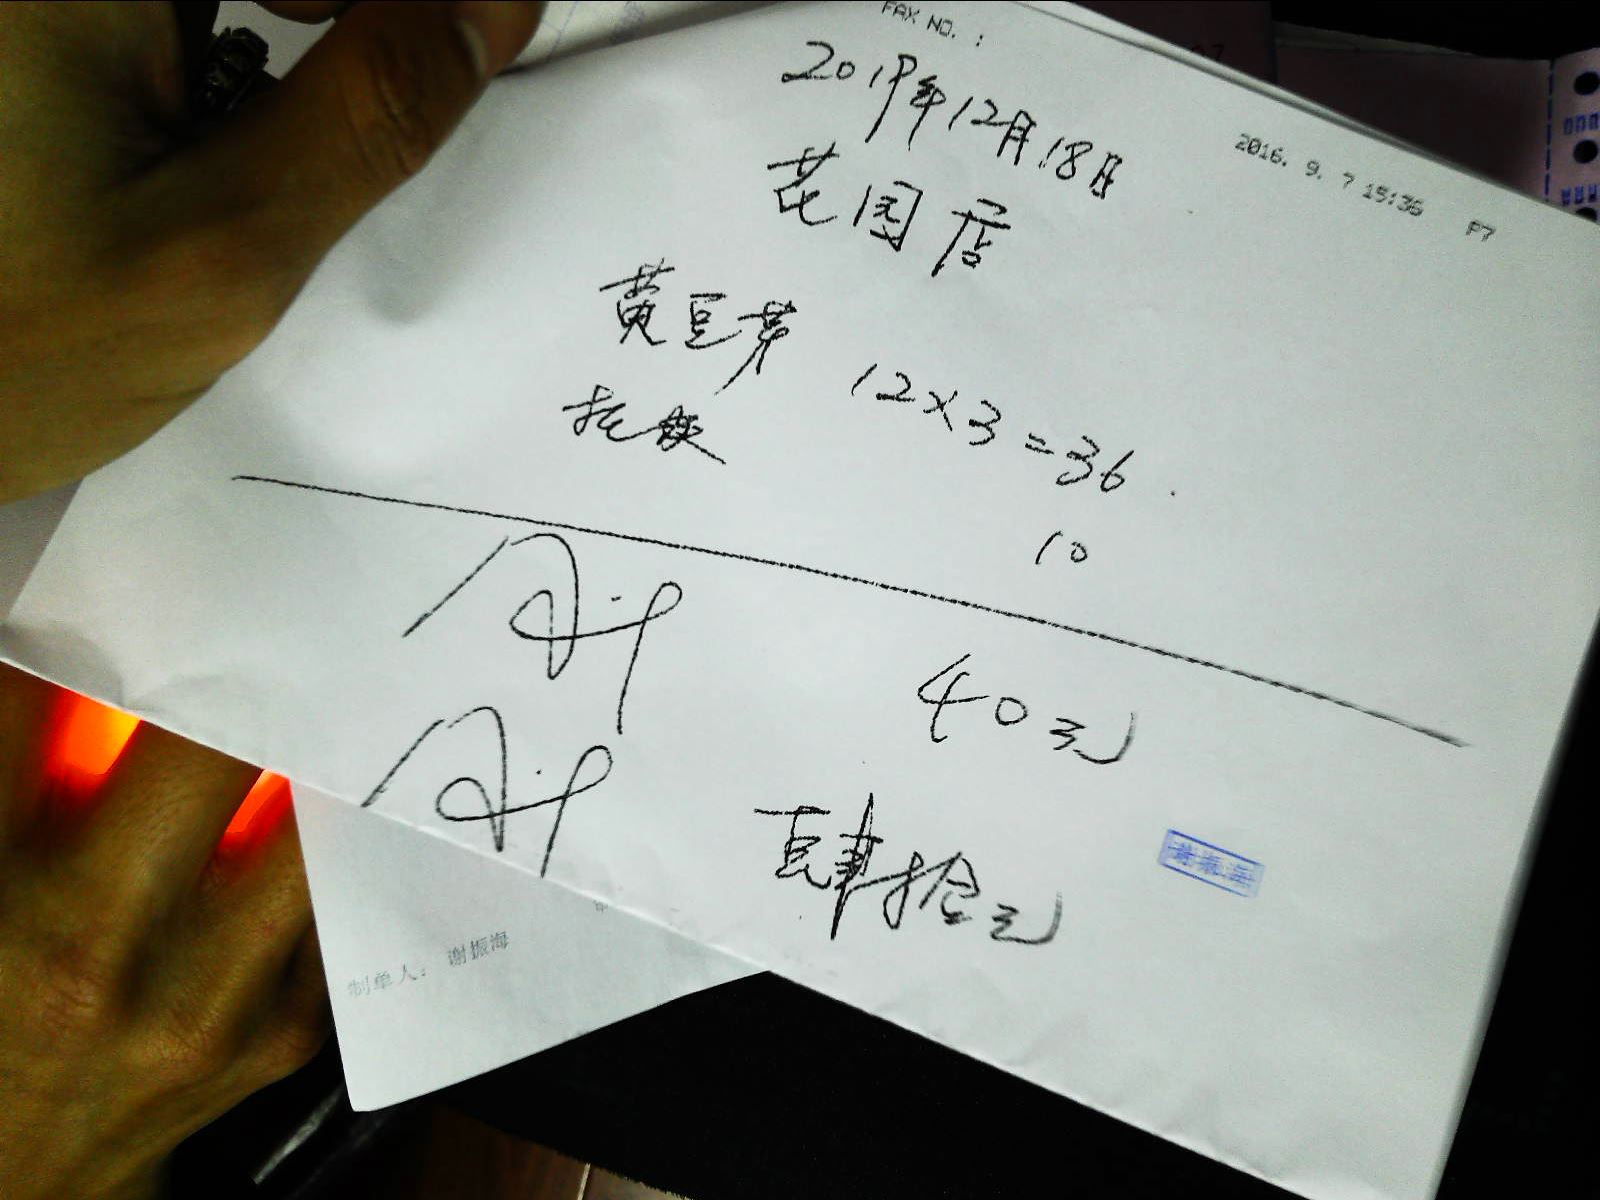 FAX NO. :
2016. 9. 7 15:36 P7
2019年12月18日
花园店
黄豆芽 12×3=36
10
40元
肆拾元
谢振海
制单人: 谢振海